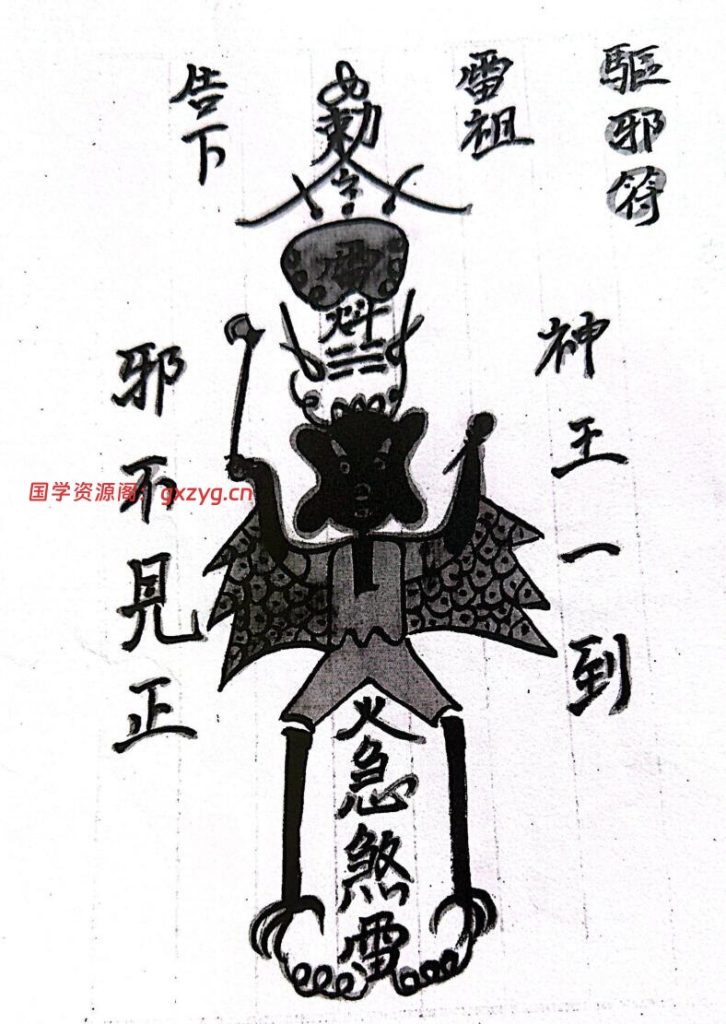 驅邪符
雷祖
勅令
告下
神王一到
火急煞雷
邪不見正
国学资源阁：gxzyg.cn